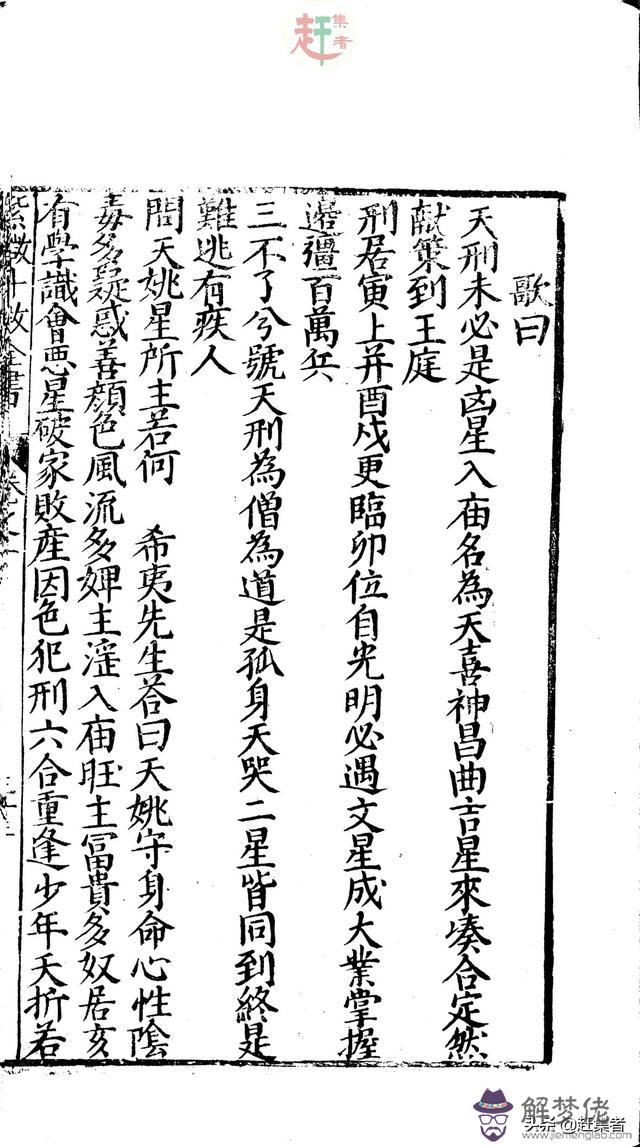 赶集者
歌曰
天刑未必是凶星入庙名為天喜神昌曲吉星來凑合定然
献策到王庭
刑居寅上并酉戌更臨卯位自光明必遇文星成大業掌握
邊疆百萬兵
三不了兮號天刑為僧為道是孤身天哭二星皆同到終是
難逃有疾人
問天姚星所主若何　希夷先生荅曰天姚守身命心性陰
毒多疑惑善顔色風流多婢主淫入庙旺主冨貴多奴居亥
有學識會惡星破家敗產因色犯刑六合重逢少年夭折若
紫微斗数全書　卷之
解梦佬
www.jiemenglao.com
头条@赶集者